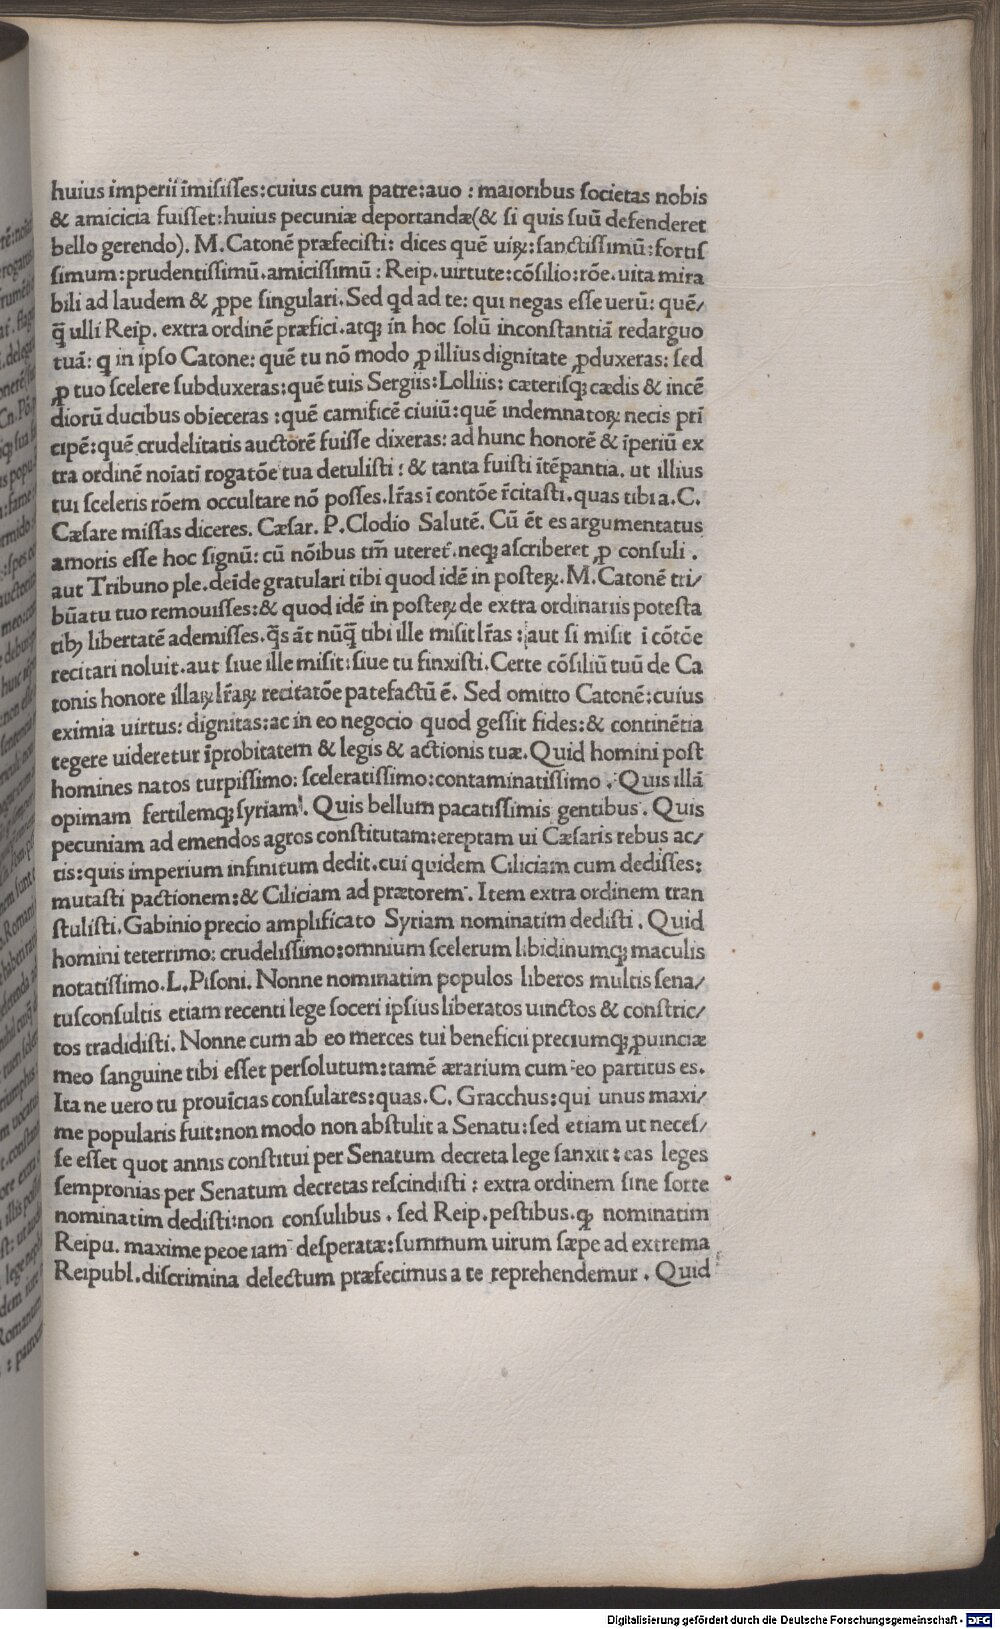 huius imperii ĩmisisses:cuius cum patre:auo : maioribus societas nobis
& amicicia fuisset:huius pecuniæ deportandæ(& si quis suũ defenderet
bello gerendo). M.Catonẽ præfecisti: dices quẽ uiꝝ:sanctissimũ:fortis
simum:prudentissimũ.amicissimũ : Reip.uirtute:cõsilio:rõe.uita mira
bili ad laudem & ꝓpe singulari.Sed qd ad te: qui negas esse uerũ: quẽ/
q̃ ulli Reip. extra ordinẽ præfici.atqꝫ in hoc solũ inconstantiã redarguo
tuã: q in ipso Catone: quẽ tu nõ modo ꝓ illius dignitate ꝓduxeras: sed
ꝓ tuo scelere subduxeras:quẽ tuis Sergiis:Lolliis: cæterisqꝫ cædis & incẽ
diorũ ducibus obieceras :quẽ carnificẽ ciuiũ:quẽ indemnatoꝝ necis prĩ
cipẽ:quẽ crudelitatis auctorẽ fuisse dixeras: ad hunc honorẽ & ĩperiũ ex
tra ordinẽ noĩatĩ rogatõe tua detulisti : & tanta fuisti ĩtẽpantia. ut illius
tui sceleris rõem occultare nõ posses.lr̃as ĩ contõe r̃citasti.quas tibi a.C.
Cæsare missas diceres. Cæsar. P.Clodio Salutẽ. Cũ ẽt es argumentatus
amoris esse hoc signũ: cũ nõibus tm̃ uteret̃.neqꝫ ascriberet ꝓ consuli .
aut Tribuno ple.deĩde gratulari tibi quod idẽ in posteꝝ.M.Catonẽ tri/
bũatu tuo remouisses:& quod idẽ in posteꝝ de extra ordinariis potesta
tibꝫ libertatẽ ademisses.q̃s ãt nũq̃ tibi ille misit lr̃as : aut si misit ĩ cõtõe
recitari noluit.aut siue ille misit:siue tu finxisti.Certe cõsiliũ tuũ de Ca
tonis honore illaꝝ lr̃aꝝ recitatõe patefactũ ẽ. Sed omitto Catonẽ:cuius
eximia uirtus: dignitas:ac in eo negocio quod gessit fides:& continẽtia
tegere uideretur ĩprobitatem & legis & actionis tuæ.Quid homini post
homines natos turpissimo: sceleratissimo:contaminatissimo . Quis illã
opimam fertilemqꝫ syriam. Quis bellum pacatissimis gentibus. Quis
pecuniam ad emendos agros constitutam:ereptam ui Cæsaris rebus ac/
tis:quis imperium infinitum dedit.cui quidem Ciliciam cum dedisses:
mutasti pactionem:& Ciliciam ad prætorem. Item extra ordinem tran
stulisti.Gabinio precio amplificato Syriam nominatim dedisti . Quid
homini teterrimo: crudelissimo:omnium scelerum libidinumqꝫ maculis
notatissimo.L.Pisoni. Nonne nominatim populos liberos multis sena/
tusconsultis etiam recenti lege soceri ipsius liberatos uinctos & constric/
tos tradidisti. Nonne cum ab eo merces tui beneficii preciumqꝫ ꝓuinciæ
meo sanguine tibi esset persolutum:tamẽ ærarium cum eo partitus es.
Ita ne uero tu prouĩcias consulares:quas.C. Gracchus:qui unus maxi/
me popularis fuit:non modo non abstulit a Senatu:sed etiam ut neces/
se esset quot annis constitui per Senatum decreta lege sanxit : eas leges
sempronias per Senatum decretas rescindisti : extra ordinem sine sorte
nominatim dedisti:non consulibus . sed Reip.pestibus.qꝫ nominatim
Reipu. maxime peoe iam desperatæ:summum uirum sæpe ad extrema
Reipubl.discrimina delectum præfecimus a te reprehendemur . Quid
Digitalisierung gefördert durch die Deutsche Forschungsgemeinschaft - DFG